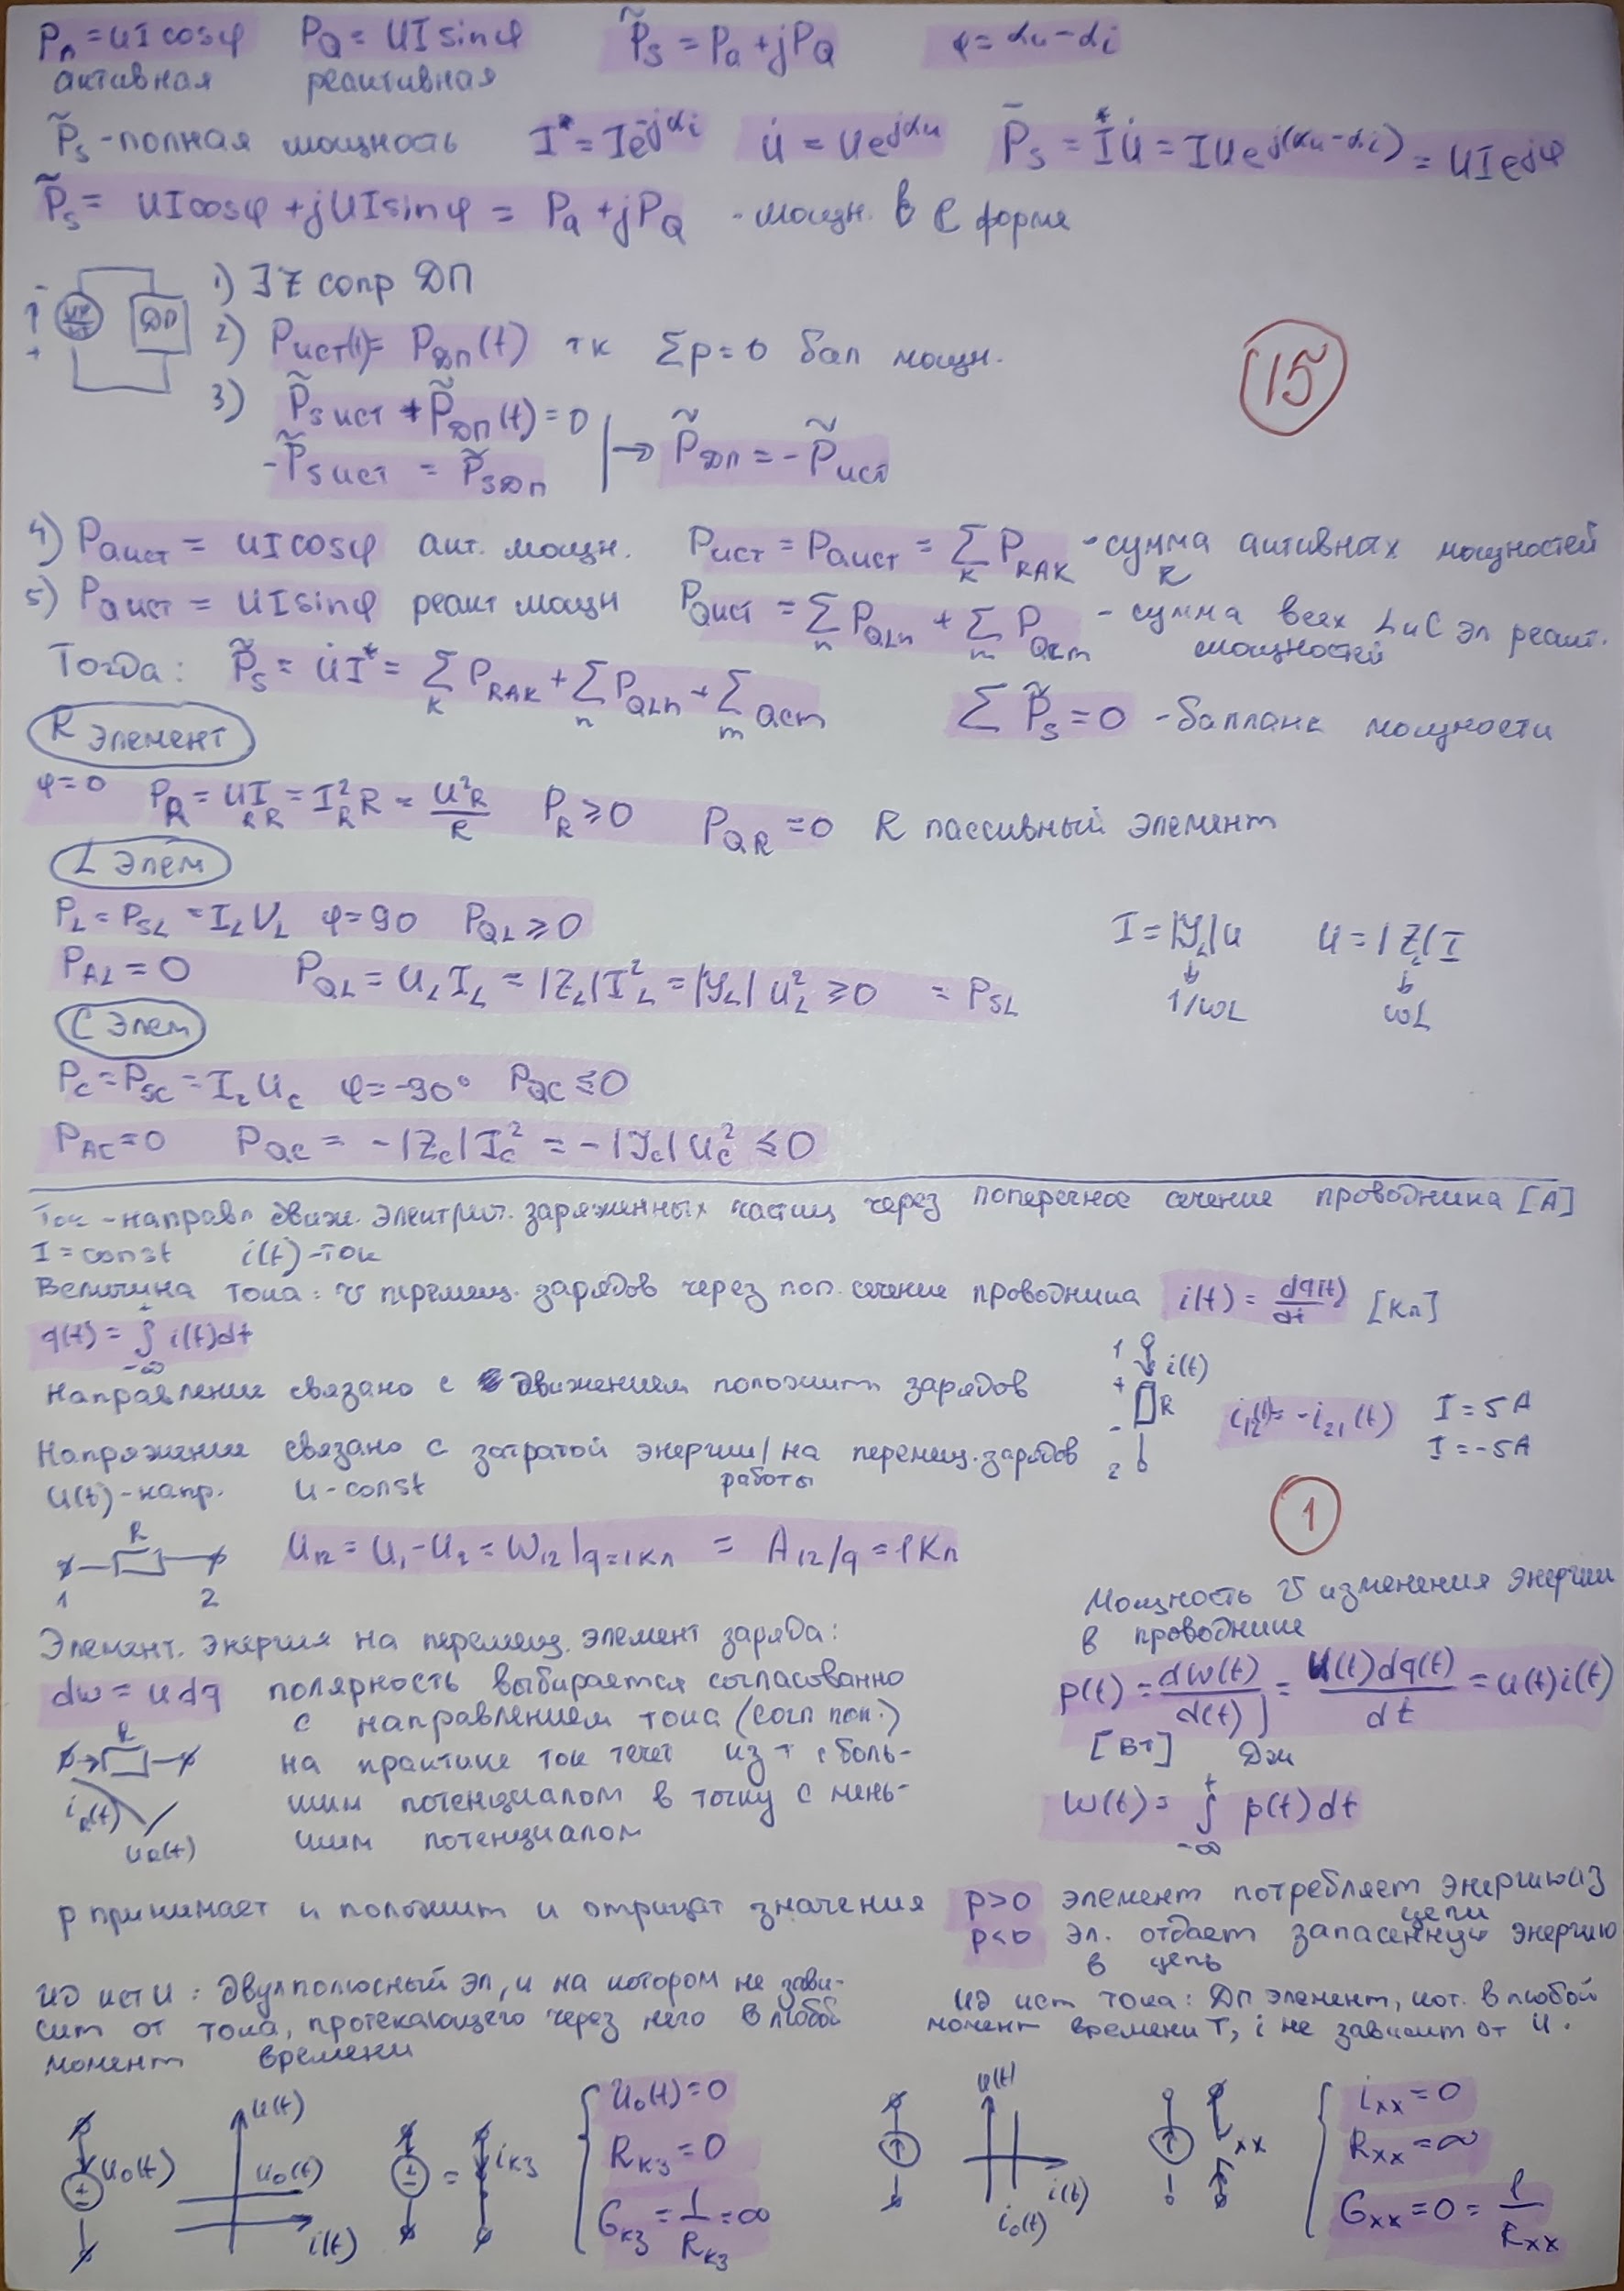 Pа = UI cosφ   PQ = UI sinφ   P̃s = Pa + jPQ   φ = αu - αi
активная   реактивная
P̃s - полная мощность   I* = Ie^-jαi   U̇ = Ue^jαu   P̃s = I*U̇ = IUe^j(αu-αi) = UIe^jφ
P̃s = UIcosφ + jUIsinφ = Pa + jPQ - мощн. в
форме
ДП
1) ∃ Z сопр ДП
2) Pист(t) = Pдп(t) тк Σp=0 бал мощн.
15
3) P̃s ист + P̃дп(t) = 0
-P̃s ист = P̃s дп → P̃дп = -P̃ист
4) Pа ист = UI cosφ акт. мощн.   Pист = Pа ист = Σk PRAK - сумма активных мощностей R
5) PQ ист = UI sinφ реакт мощн   PQист = Σn PQLn + Σm PQCm - сумма всех L и C эл реакт. мощностей
Тогда: P̃s = U̇I* = Σk PRAK + Σn PQLn + Σm QCm   Σ P̃s = 0 - балланс мощности
R элемент
φ=0   PR = URIR = I²R R = U²R/R   PR ≥ 0   PQR = 0   R пассивный элемент
L Элем
PL = PSL = ILUL   φ = 90   PQL ≥ 0
I = |YL|U   U = |ZL|I
PAL = 0   PQL = ULIL = |ZL|I²L = |YL|U²L ≥ 0 = PSL
1/ωL   ωL
C Элем
PC = PSC = ICUC   φ = -90°   PQC ≤ 0
PAC = 0   PQC = -|ZC|I²C = -|YC|U²C ≤ 0
Ток - направл движ. электрич. заряженных частиц через поперечное сечение проводника [A]
I = const   i(t) - ток
Величина тока: v перемещ. зарядов через поп. сечение проводника   i(t) = dq(t)/dt   [Кл]
q(t) = ∫-∞^t i(t)dt
Направление связано с движением положит зарядов
1 i(t) + R - 2
i12(t) = -i21(t)   I = 5 A
I = -5A
Напряжение связано с затратой энергии/работы на перемещ. зарядов
U(t) - напр.   U - const
1
R 1 2   U12 = U1 - U2 = W12|q=1Кл = A12/q=1Кл
Мощность v изменения энергии
в проводнике
Элемент. энергия на перемещ. элемент заряда:
dw = u dq   полярность выбирается согласованно
с направлением тока (согл пок.)
p(t) = dw(t)/d(t) = U(t)dq(t)/dt = u(t)i(t)
[Вт]   Дж
R   на практике ток течет из т с боль-
iR(t)   шим потенциалом в точку с мень-
uR(t)   шим потенциалом
w(t) = ∫-∞^t p(t)dt
p принимает и положит и отрицат значения   p>0 элемент потребляет энергию из цепи
p<0 эл. отдает запасенную энергию
в цепь
ИЭ ист U: двухполюсный эл, и на котором не зави-
сит от тока, протекающего через него в любой
момент времени
ИЭ ист тока: ДП элемент, кот. в любой
момент времени T, i не зависит от U.
u0(t)   u(t)   u0(t)   i(t)   =   iкз
U0(t) = 0
Rкз = 0
Gкз = 1/Rкз = ∞
u(t)   i(t)   i0(t)   xx
ixx = 0
Rxx = ∞
Gxx = 0 = 1/Rxx